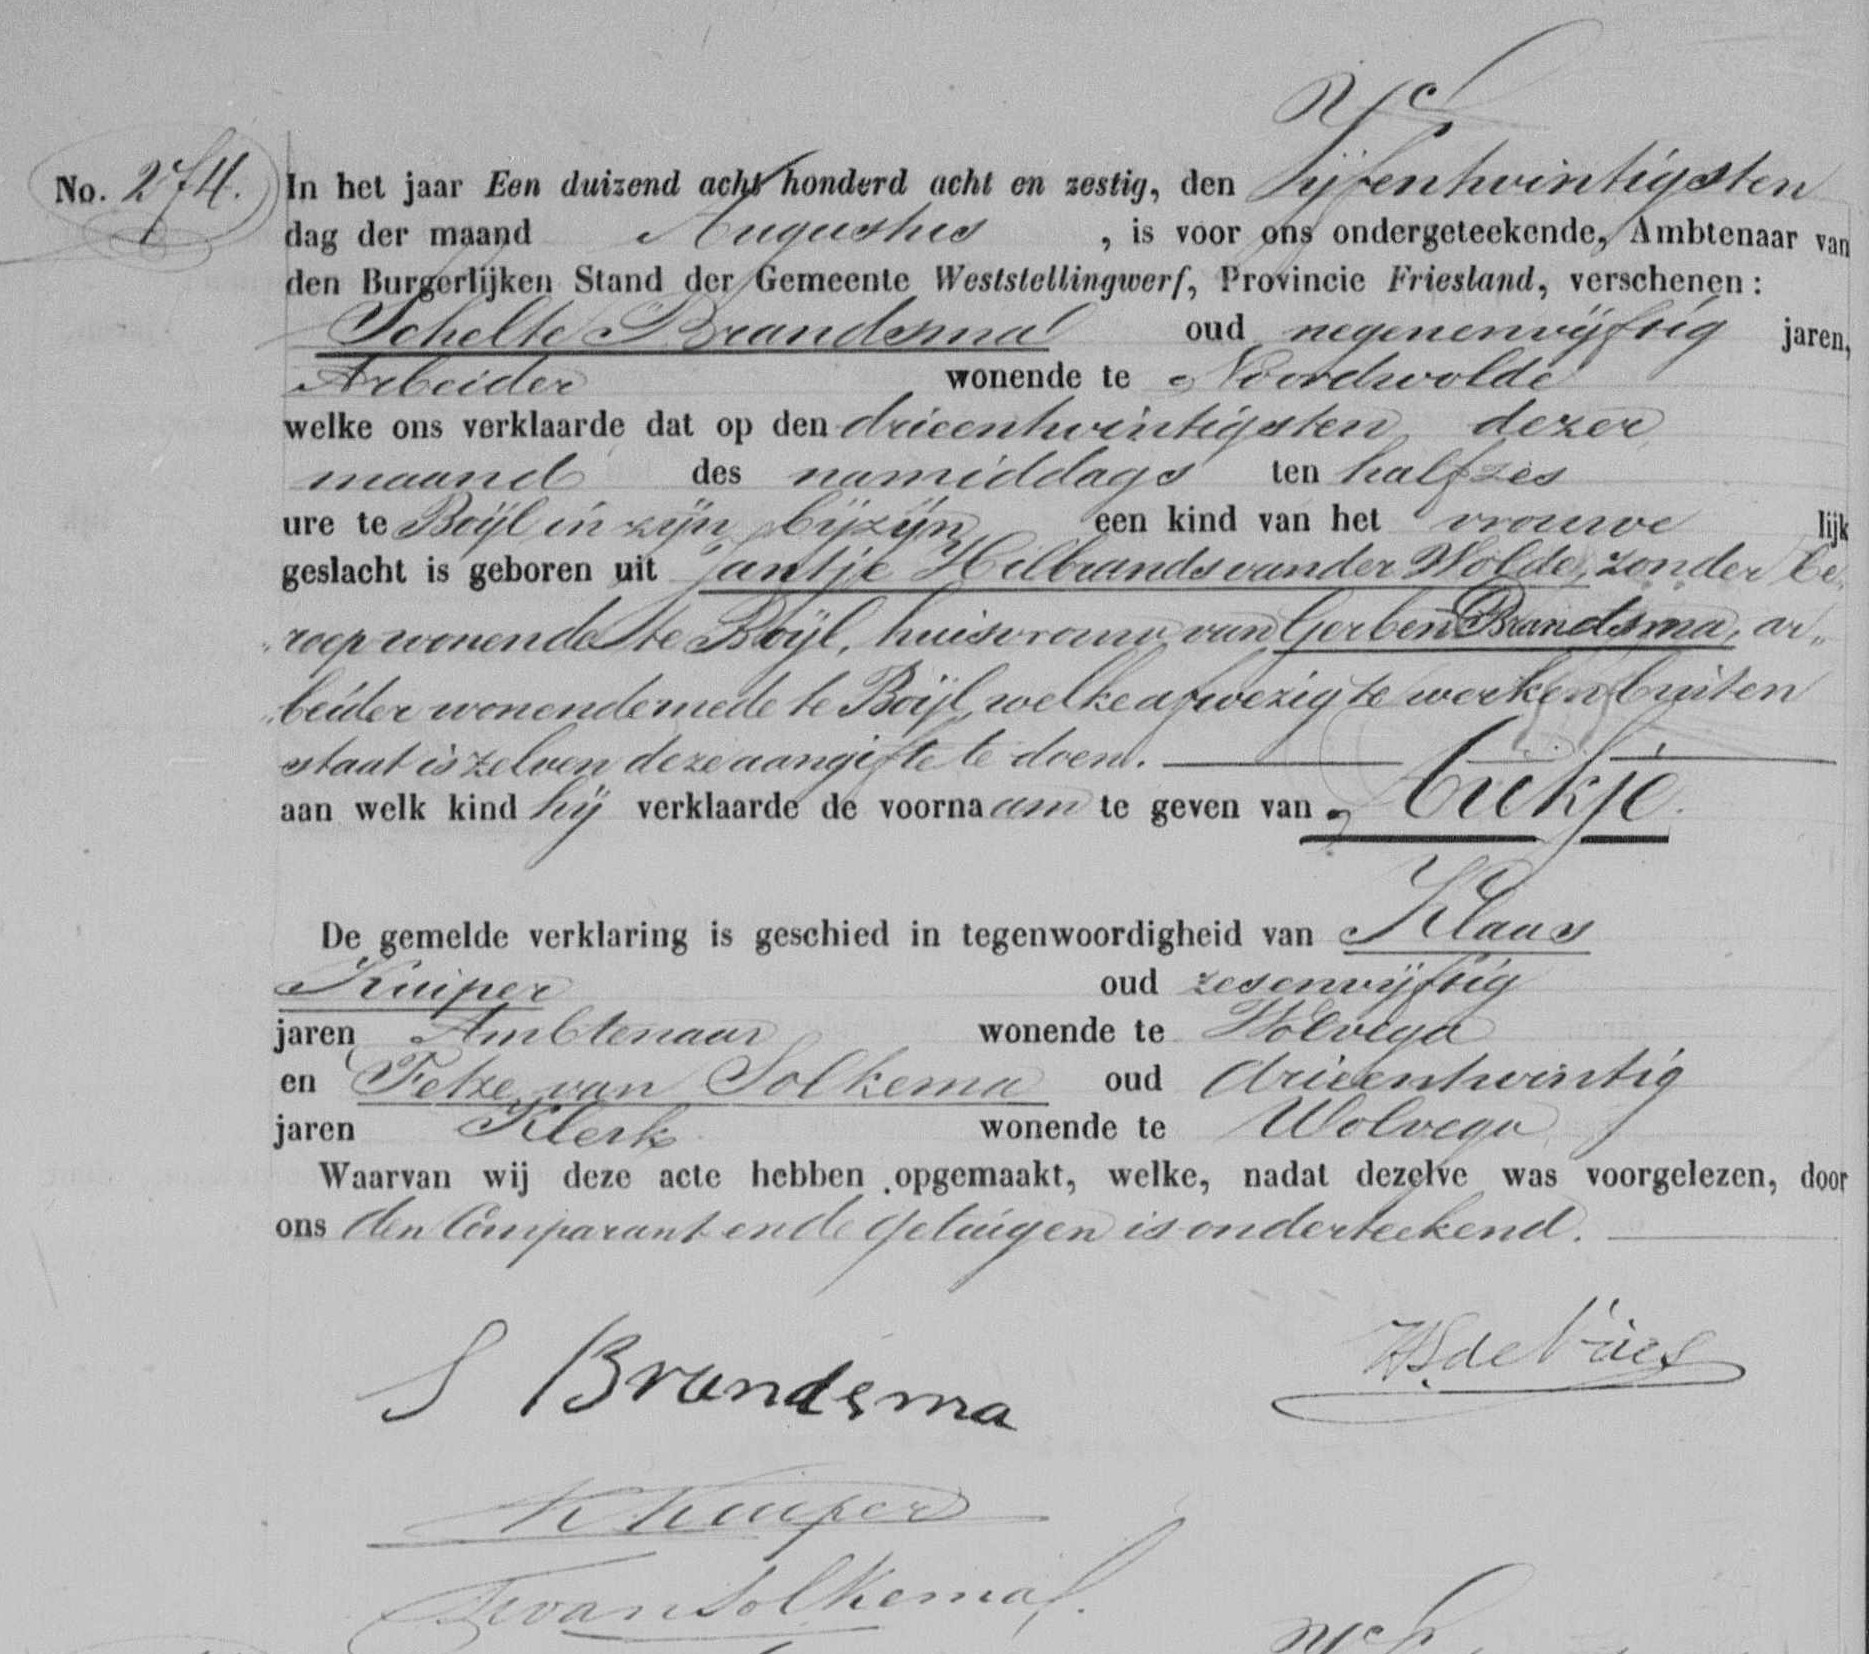 No. 274. In het jaar Een duizend acht honderd acht en zestig, den Vijfentwintigsten
dag der maand Augustus , is voor ons ondergeteekende, Ambtenaar van
den Burgerlijken Stand der Gemeente Weststellingwerf, Provincie Friesland, verschenen :
Schelte Brandsma oud negenenvijftig jaren,
Arbeider wonende te Noordwolde
welke ons verklaarde dat op den drieentwintigsten dezer
maand des namiddags ten half zes
ure te Boijl in zijn bijzijn een kind van het vrouwe lijk
geslacht is geboren uit Jantje Hilbrands van der Wolde, zonder be„
„roep wonende te Boijl, huisvrouw van Gerben Brandsma, ar„
„beider wonende mede te Boijl, welke afwezig te werken buiten
staat is zelven deze aangifte te doen.
aan welk kind hij verklaarde de voorna am te geven van Eükje.
De gemelde verklaring is geschied in tegenwoordigheid van Klaas
Kuiper oud zesenvijftig
jaren Ambtenaar wonende te Wolvega
en Fetze van Solkema oud drieentwintig
jaren Klerk wonende te Wolvega
Waarvan wij deze acte hebben opgemaakt, welke, nadat dezelve was voorgelezen, door
ons den Comparant en de getuigen is onderteekend.
S Brandsma
HS de Vries
K Kuiper
F van Solkema